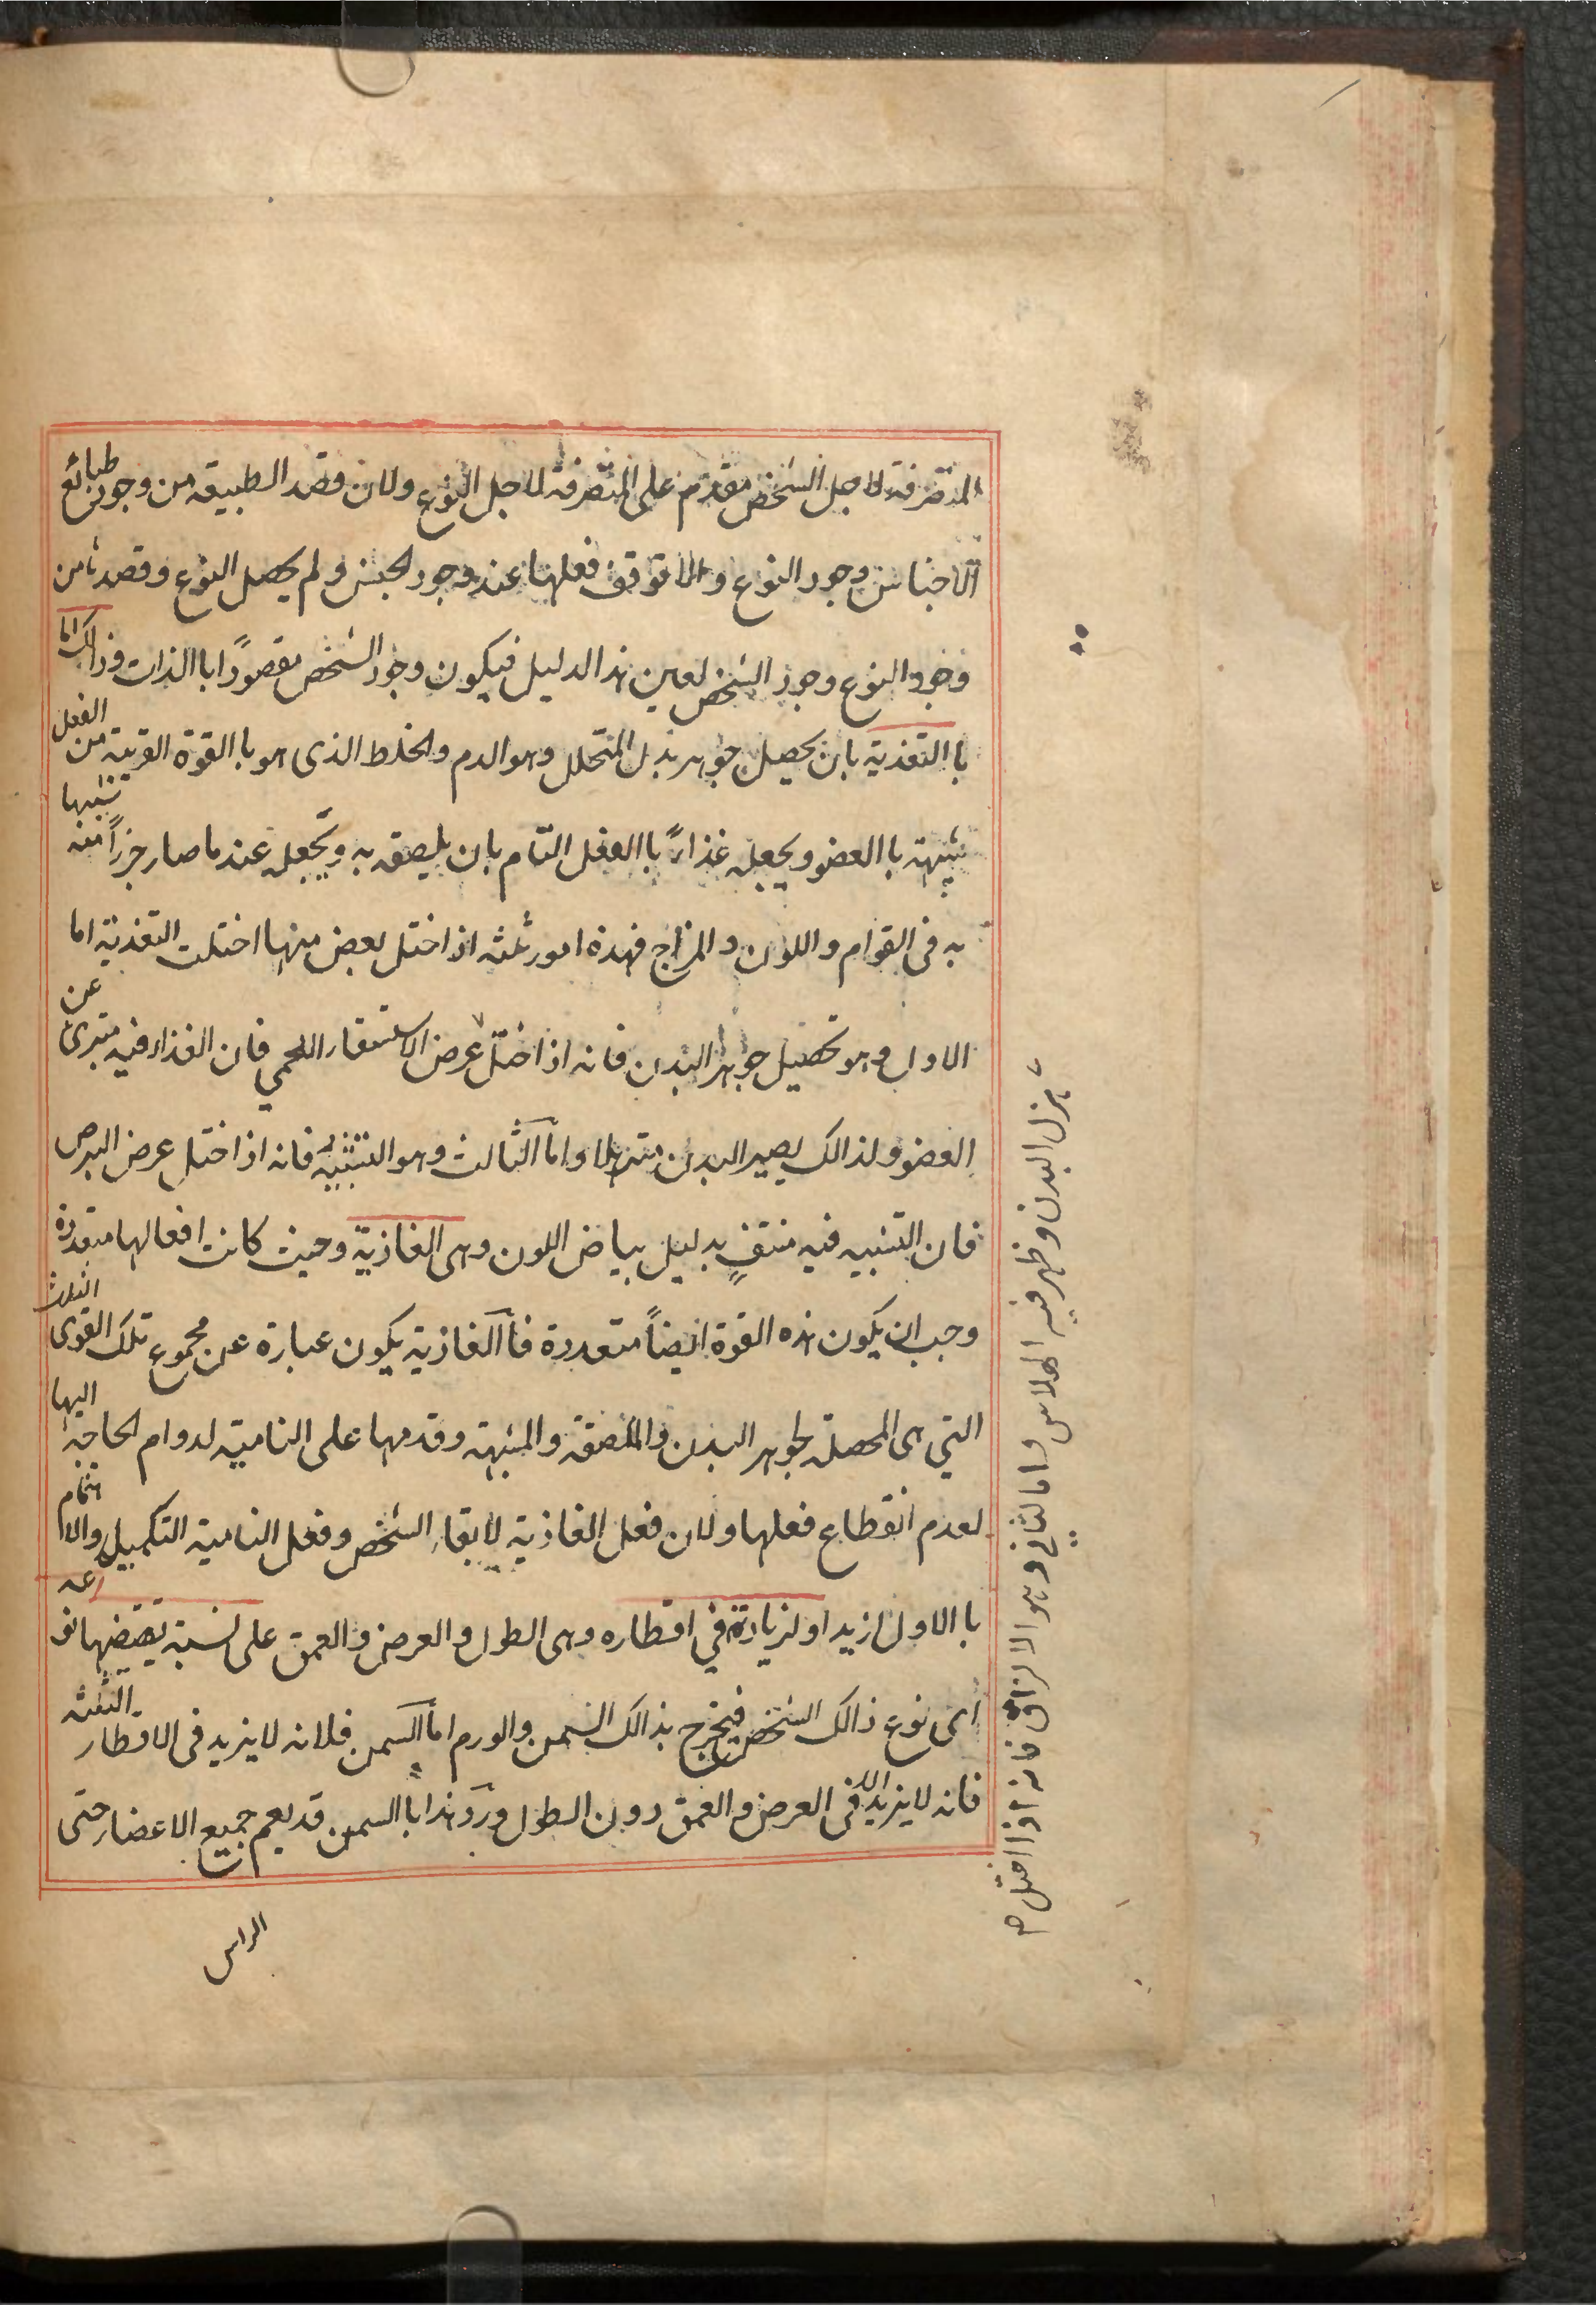 المتصرفة لاجل الشخص مقدم على المتصرفة لاجل النوع ولان قصد الطبيعة من وجود طبائع
الاجناس وجود النوع والا توقف فعلها عند وجود الجنس ولم يحصل النوع وقصدها من
وجود النوع وجود الشخص لعين هذا الدليل فيكون وجود الشخص مقصودًا باالذات وذالك اما
باالتغذية بان يحصل جوهر بدل المتحلل وهو الدم والخلط الذى هو باالقوة القريبة من الفعل
شبيهة باالعضو ويجعله غذاءً باالفعل التام بان يلصقه به ويجعله عندما صار جزءًا منه شبيها
به فى القوام واللون والمزاج فهذه امور ثلثه اذا اختل بعض منها اختلت التغذية اما
الاول وهو تحصيل جوهر البدن فانه اذا اختل عرض الاستسقاء اللحمي فان الغذاء فيه متبرئ عن
العضو ولذالك يصير البدن مترهلا واما الثالث وهو التشبيه فانه اذا اختل عرض البرص
فان التشبيه فيه منتفٍ بدليل بياض اللون وهى الغاذية وحيث كانت افعالها متعددة
وجب ان يكون هذه القوة ايضاً متعددة فاالغاذية يكون عبارة عن مجموع تلك القوى الثلث
التي هى المحصلة لجوهر البدن والملصقة والمشبهة وقدمها على النامية لدوام الحاجة اليها
لعدم انقطاع فعلها ولان فعل الغاذية لابقاء الشخص وفعل النامية التكميل والاهتمام
باالاول ازيد او لزيادة في اقطاره وهى الطول والعرض والعمق على نسبة تقتضيها نوعه
اى نوع ذالك الشخص فيخرج بذالك السمن والورم اما السمن فلانه لا يزيد فى الاقطار الثلثه
فانه لا يزيد الا فى العرض والعمق دون الطول ورد هذا باالسمن قد يعم جميع الاعضاء حتى
الراس
هزل البدن وظهر فيه الهلاس واما الثاني وهو الالزاق فانه اذا اختل صح